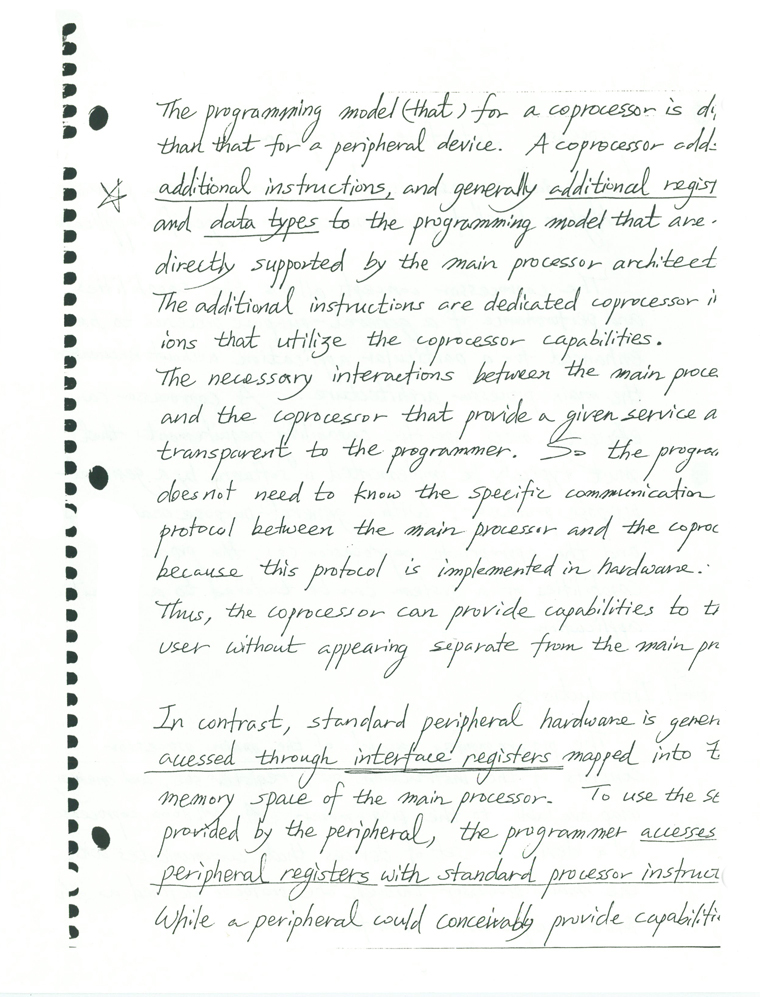 The programming model (that) for a coprocessor is di
than that for a peripheral device. A coprocessor add
additional instructions, and generally additional regist
and data types to the programming model that are
directly supported by the main processor architect
The additional instructions are dedicated coprocessor i
ions that utilize the coprocessor capabilities.
The necessary interactions between the main proce
and the coprocessor that provide a given service a
transparent to the programmer. So the program
does not need to know the specific communication
protocol between the main processor and the coproc
because this protocol is implemented in hardware.
Thus, the coprocessor can provide capabilities to t
user without appearing separate from the main pr
In contrast, standard peripheral hardware is gener
accessed through interface registers mapped into t
memory space of the main processor. To use the se
provided by the peripheral, the programmer accesses
peripheral registers with standard processor instruct
While a peripheral could conceivably provide capabiliti